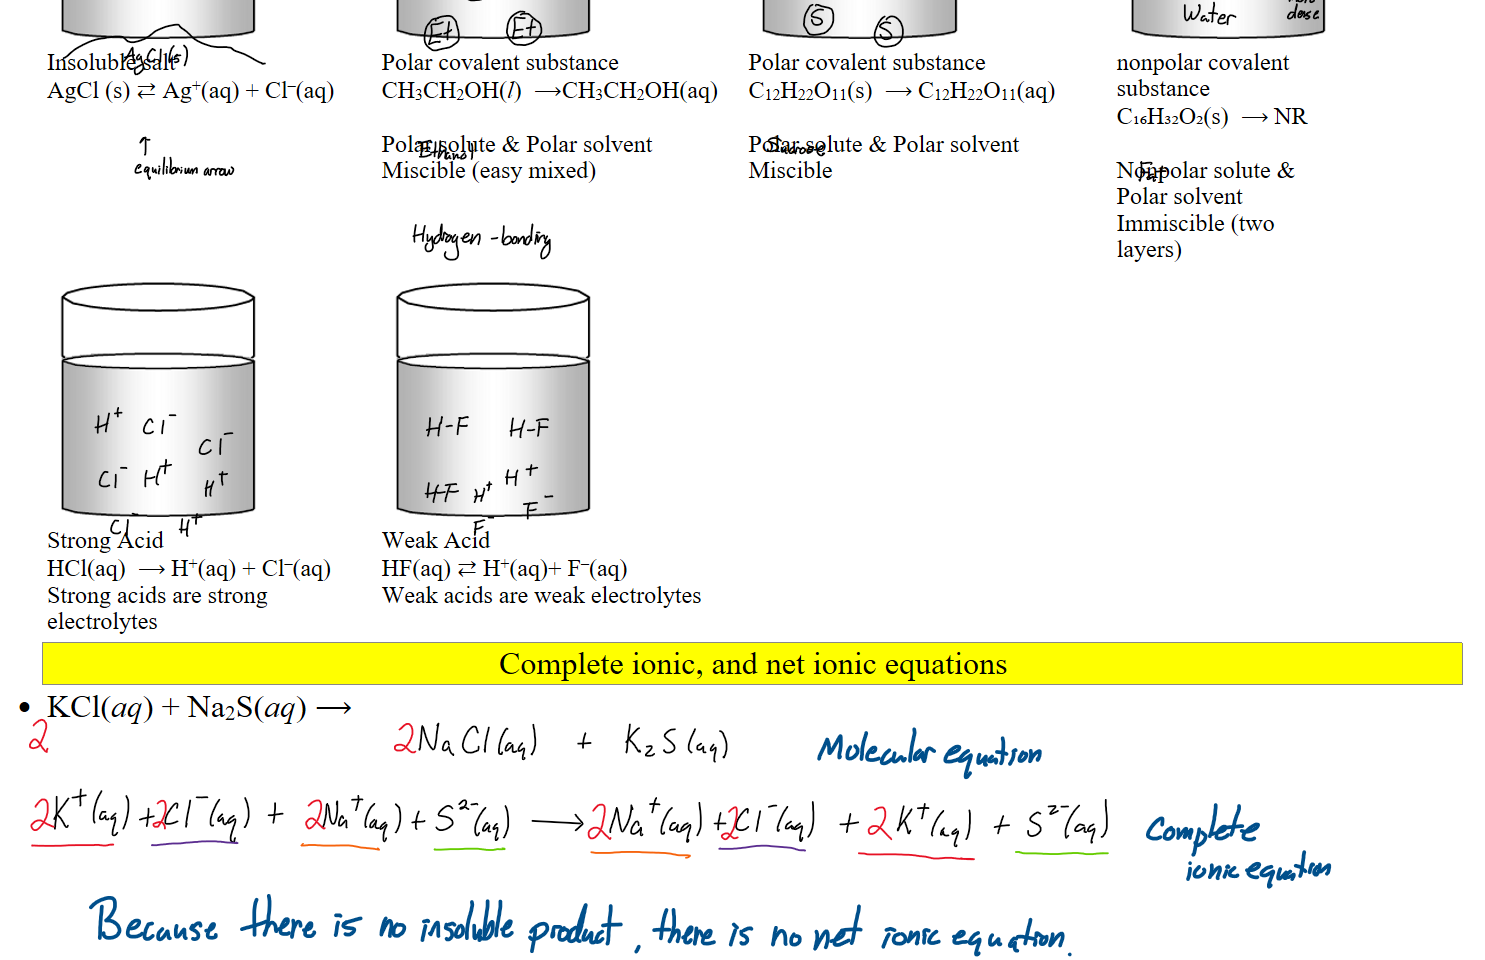 Et Et
S S
Water
dense
AgCl(s)
Insoluble salt
AgCl (s) ⇄ Ag⁺(aq) + Cl⁻(aq)
↑
equilibrium arrow
Polar covalent substance
CH₃CH₂OH(l) →CH₃CH₂OH(aq)
Ethanol
Polar solute & Polar solvent
Miscible (easy mixed)
Hydrogen-bonding
Polar covalent substance
C₁₂H₂₂O₁₁(s) → C₁₂H₂₂O₁₁(aq)
Sucrose
Polar solute & Polar solvent
Miscible
nonpolar covalent
substance
C₁₆H₃₂O₂(s) → NR
Fat
Nonpolar solute &
Polar solvent
Immiscible (two
layers)
H⁺ Cl⁻
Cl⁻
Cl⁻ H⁺
H⁺
Cl⁻ H⁺
Strong Acid
HCl(aq) → H⁺(aq) + Cl⁻(aq)
Strong acids are strong
electrolytes
H-F H-F
H-F H⁺ H⁺
F⁻ F⁻
Weak Acid
HF(aq) ⇄ H⁺(aq)+ F⁻(aq)
Weak acids are weak electrolytes
Complete ionic, and net ionic equations
• KCl(aq) + Na₂S(aq) →
2
2NaCl(aq) + K₂S(aq) Molecular equation
2K⁺(aq) +2Cl⁻(aq) + 2Na⁺(aq) + S²⁻(aq) → 2Na⁺(aq) +2Cl⁻(aq) + 2K⁺(aq) + S²⁻(aq) Complete
ionic equation
Because there is no insoluble product, there is no net ionic equation.